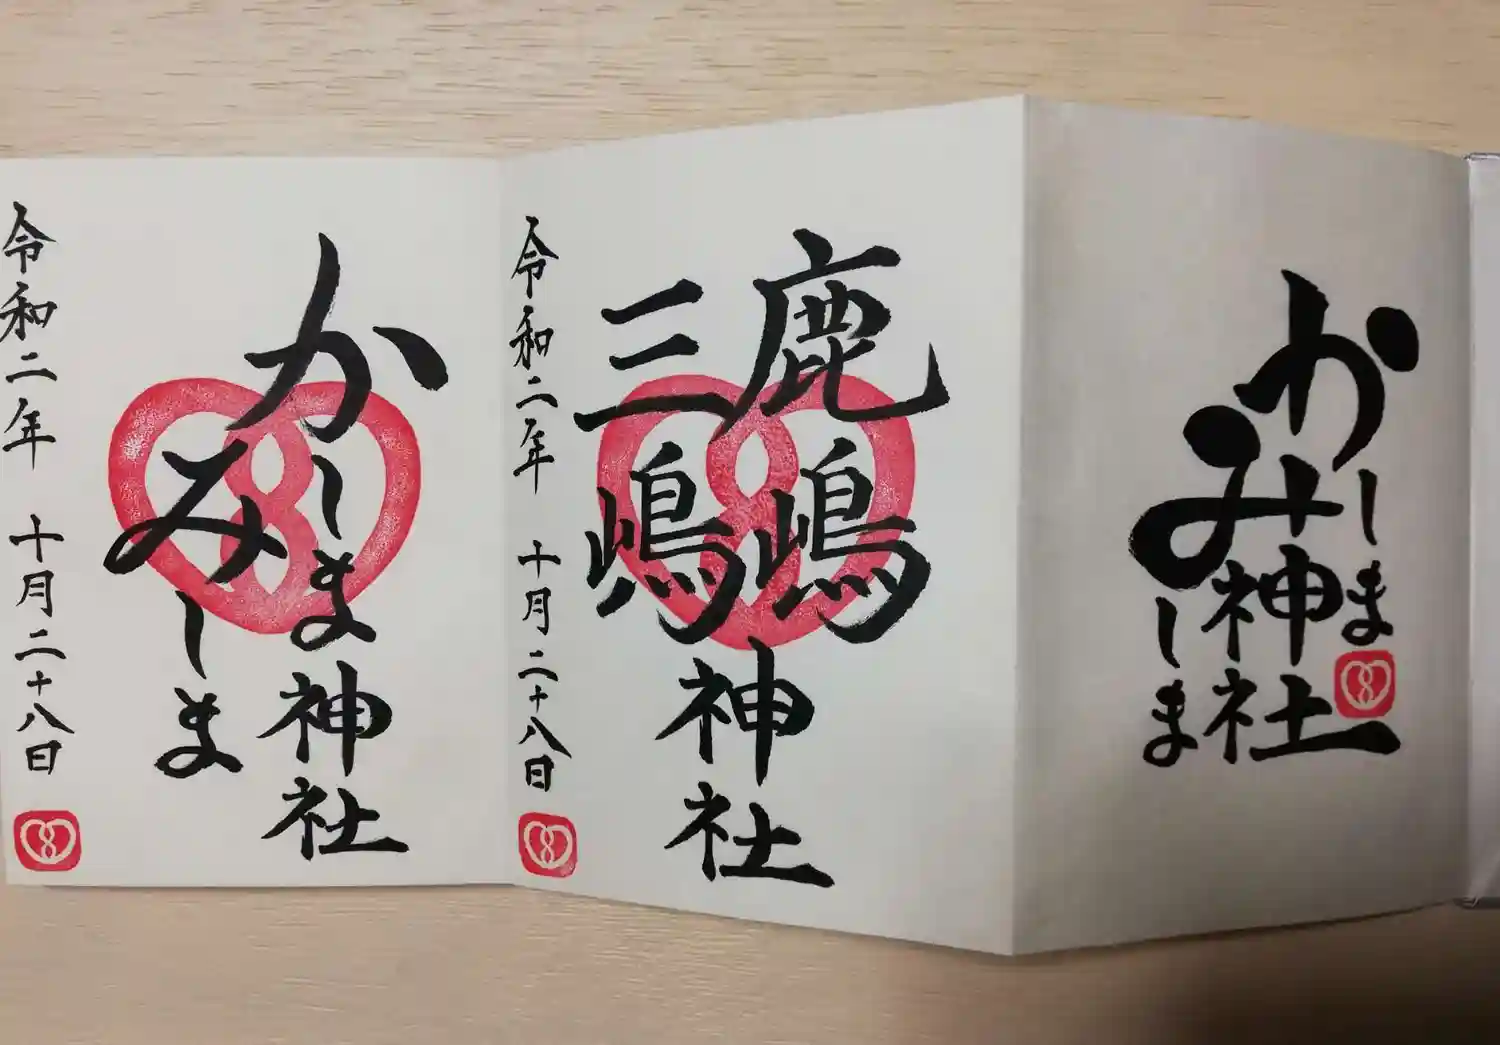 かしま
みしま
神社
鹿嶋
三嶋
神社
令和二年 十月二十八日
かしま神社
みしま
令和二年 十月二十八日